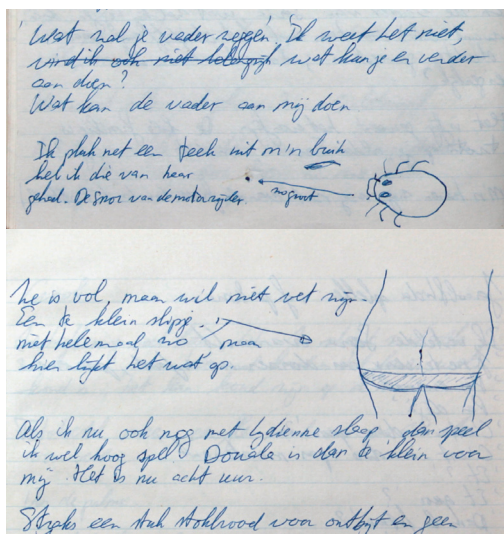 Wat zal je vader zeggen. Ik weet het niet,
vind ik ook niet belangrijk wat kan je er verder
aan doen?
Wat kan de vader aan mij doen
Ik pluk net een teek uit m'n buik
heb ik die van haar
gehad. De snor van de motorrijder.
zo groot
Ze is vol, maar wil niet vet zijn.
Een te klein slipje.
niet helemaal zo maar
hier lijkt het wat op.
Als ik nu ook nog met Lydienne slaap dan speel
ik wel hoog spel. Douala is dan te klein voor
mij. Het is nu acht uur.
Straks een stuk stokbrood voor ontbijt en geen